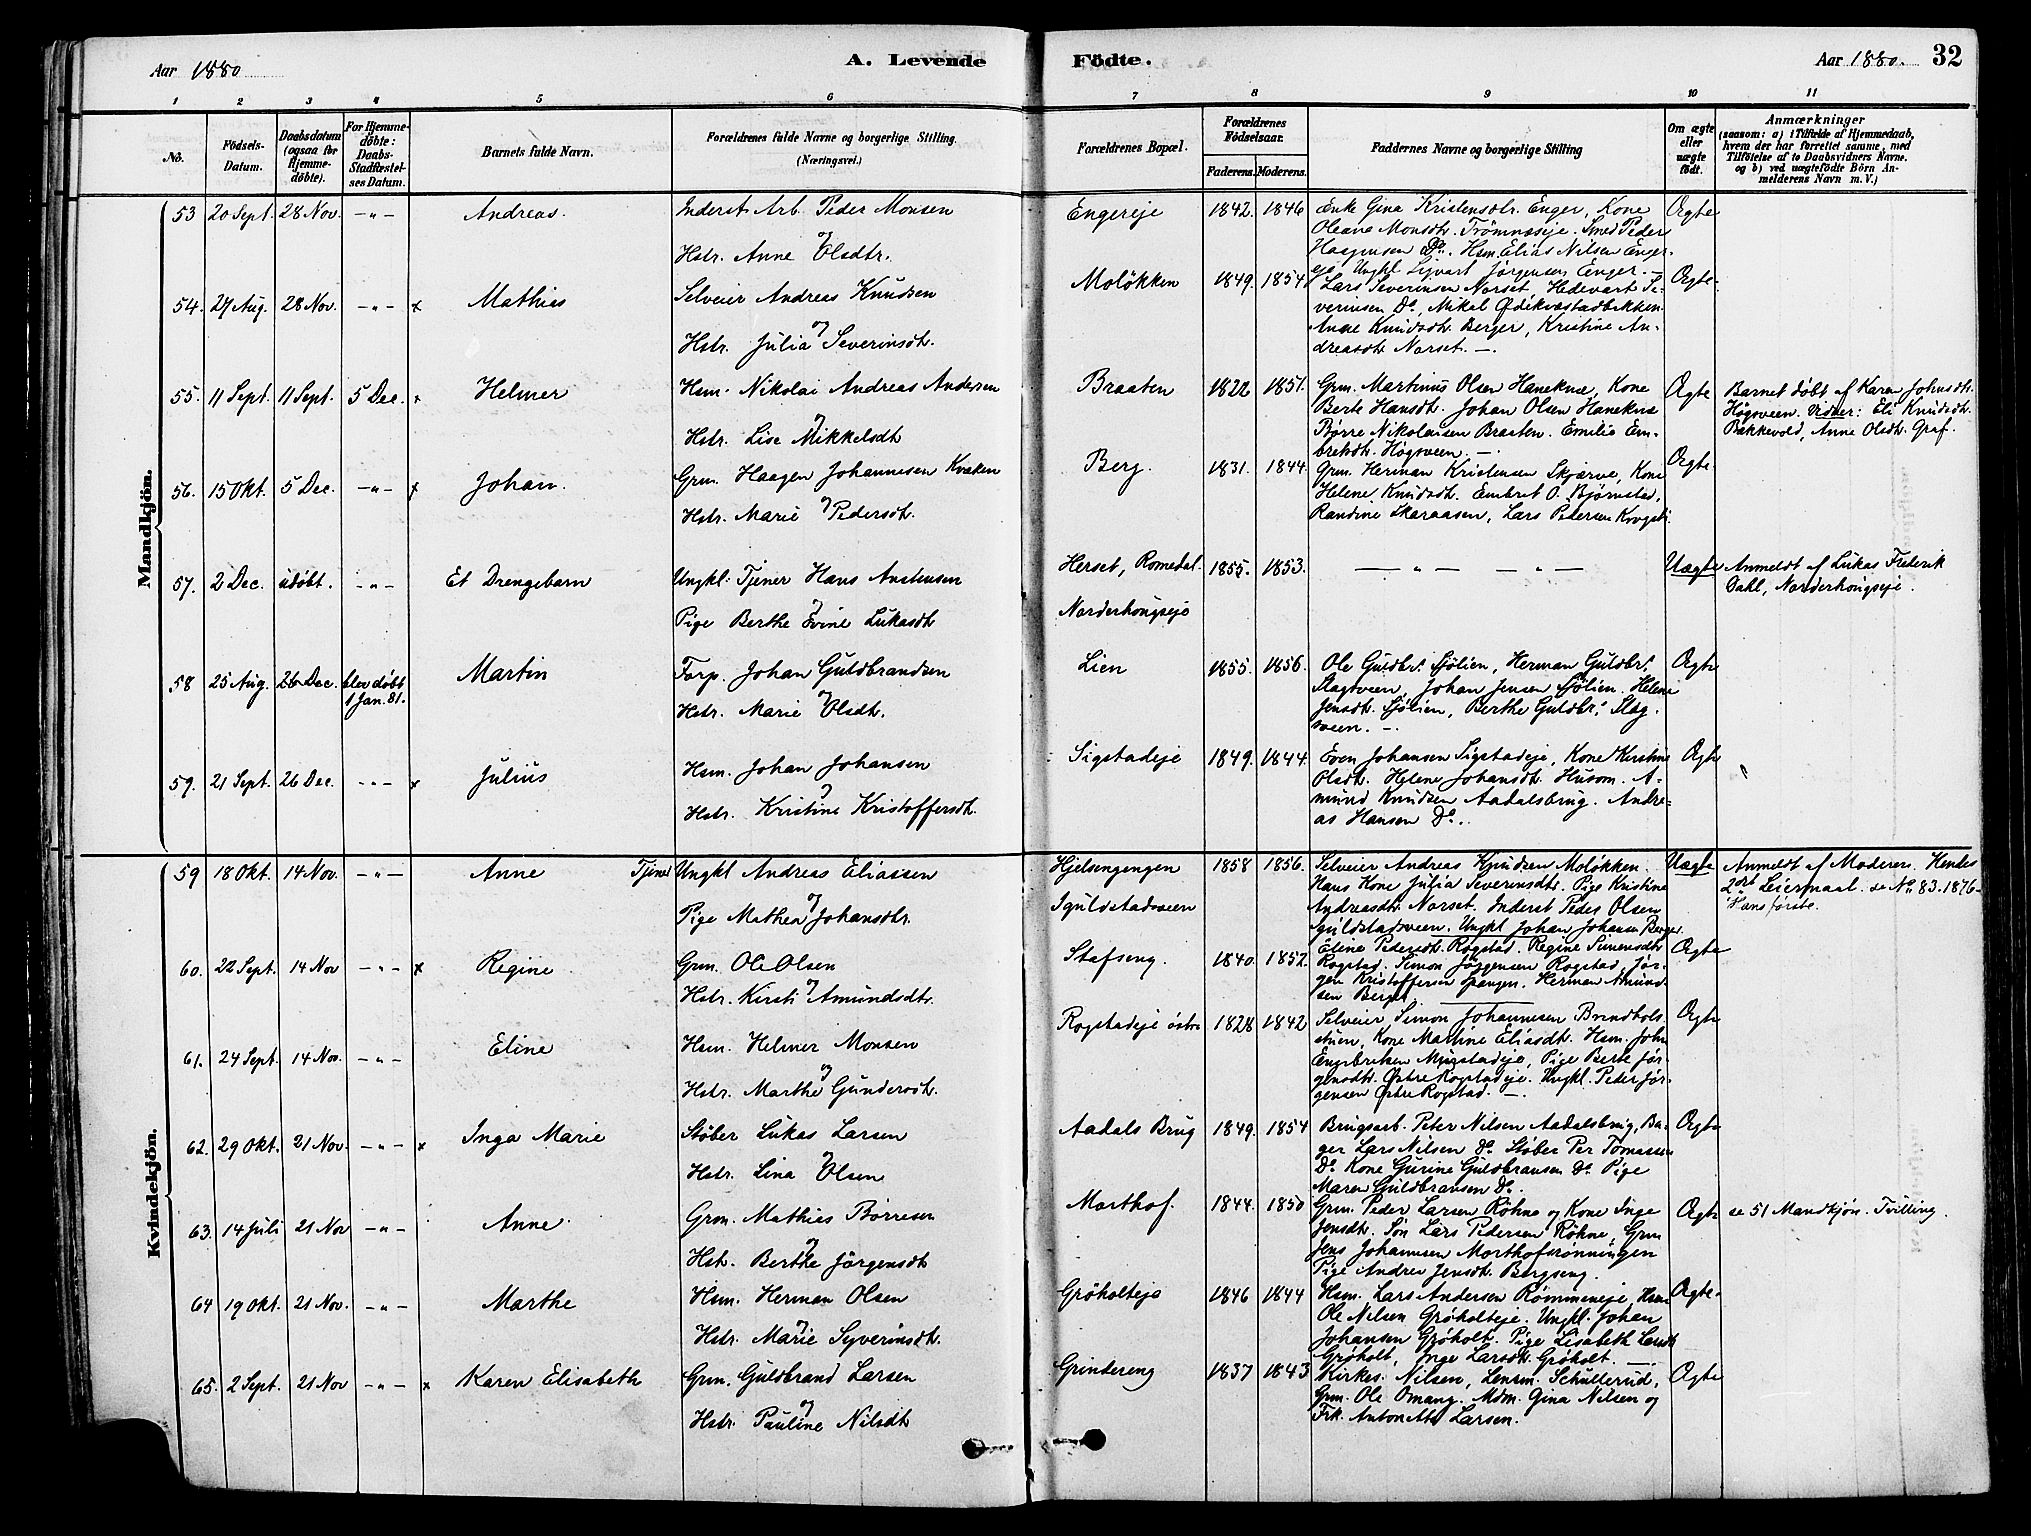 Aar 1880
A. Levende
Födte.
Aar 1880.
32
1 2 3 4 5 6 7 8 9 10 11
No.
Födsels-Datum.
Daabsdatum (ogsaa for Hjemme-döbte).
For Hjemme-döbte: Daabs-Stadfæstelses Datum.
Barnets fulde Navn.
Forældrenes fulde Navne og borgerlige Stilling.
(Næringsvei.)
Forældrenes Bopæl.
Forældrenes Födselsaar.
Faderens. Moderens.
Faddernes Navne og borgerlige Stilling
Om ægte eller uægte födt.
Anmærkninger
(saasom: a) i Tilfælde af Hjemmedaab,
hvem der har forrettet samme, med
Tilföielse af to Daabsvidners Navne.
og b) ved uægtefödte Börn An-
melderens Navn m. V.)
Mandkjön.
53 20 Sept. 28 Nov. -"- Andreas. Inderst Arb. Peder Monsen
og
Hstr. Anne Olsdtr.
Engereje 1842. 1846 Enke Gina Kristensdtr. Enger, Kone
Oleane Monsdtr. Trömnæseje. Smed Peder
Haagensen Do. Hsm. Elias Nilsen Enger-
eje Ungkl Sigvart Jörgensen Enger. -
Ægte
54. 27 Aug. 28 Nov. -"- x Mathias Selveier Andreas Knudsen
og
Hstr. Julia Severinsdt.
Molökken 1849. 1854 Lars Severinsen Norset, Hedevart Se-
verinsen Do, Mikal Ödikvæstadbekken.
Anne Knudsdt. Berger, Kristine An-
dreasdt. Norset. -.
Ægte.
55. 11 Sept. 11 Sept. 5 Dec. x Helmer Hsm. Nikolai Andreas Andersen
og
Hstr. Lise Mikkelsdt
Braaten 1822 1851. Grm. Martinus Olsen Haneknæ, Kone
Berte Hansdt. Johan Olsen Haneknæ
Börre Nikolaisen Braaten. Emilie Em-
breksdt. Högsveen. -.
Ægte Barnet döbt af Karen Johnsdt.
Högsveen. Vidner: Eli Knudsdt.
Bakkevold, Anne Olsdt. Graf.
56. 15 Okt. 5 Dec. -"- x Johan. Grm. Haagen Johannesen Kvæken
og
Hstr. Marie Pedersdt.
Berg. 1831. 1844. Grm. Herman Kristensen Skjærve, Kone
Helene Knudsdt. Embret O. Björnstad,
Randine Skaraasen, Lars Pedersen
Ægte
57. 2 Dec. udöbt. -"- Et Drengebarn Ungkl. Tjener Hans Anstensen
og
Pige Berthe Evine Lukasdt
Herset, Romedal. 1855. 1853. - " - - " -
Norderhougseje
Uægte Anmeldt af Lukas Frederik
Dahl, Norderhougseje.
58 25 Aug. 26 Dec. blev döbt
1 Jan. 81.
Martin Torp. Johan Guldbrandsen
og
Hstr. Marie Olsdt.
Lien 1855. 1856. Ole Guldbr. Sjölien, Herman Guldbr.
Slagsveen, Johan Jensen Sjölien. Helene
Jensdt. Sjölien, Berthe Guldbr. Slag-
sveen. -.
Ægte
59. 21 Sept. 26 Dec. -"- x Julius Hsm. Johan Johansen
og
Hstr. Kristine Kristoffersdt.
Sigstadeje 1849. 1844. Even Johansen Sigstadeje, Kone Kirstine
Olsdt. Helene Johansdt. Husom. A-
mund Knudsen Aadalsbrug. Andre-
as Hansen Do.
Ægte
Kvindekjön.
59 18 Okt. 14 Nov. -"- Anne Tjener Ungkl Andreas Eliassen
og
Pige Mathea Johansdtr.
Hjelsengengen 1858 1856. Selveier Andreas Knudsen Molökken.
Iguldstadsveen
Hans Kone Julia Severinsdtr. Pige Kristine
Andreasdtr. Norset. Inderst Peder Olsen
Iguldstadsveen. Ungkl Johan Johansen Berger.
Uægte Anmeldt af Moderen. Hendes
2det Leiermaal. se No. 83. 1876.
Hans förste.
60. 22 Sept. 14 Nov -"- x Regine Grm. Ole Olsen
og
Hstr. Kirsti Amundsdtr.
Stafseng. 1840. 1852. Eline Pedersdt. Rogstad. Regine Simensdt.
Rogstad. Simon Jörgensen Rogstad, Jör-
gen Kristoffersen Spangen. Herman Amund-
sen Berget.
Ægte
61. 24 Sept. 14 Nov. -"- Eline Hsm. Helmer Monsen
og
Hstr. Marthe Gundersdt.
Rogstadeje östre 1828 1842 Selveier Simon Johannesen Brendbols-
stuen, Kone Martine Eliasdt. Hsm. John
Engebretsen Mugstadeje, Pige Berte Jör-
gensdt. Östre Rogstadeje. Ungkl. Peder Jör-
gensen Östre Rogstad. -.
Ægte
62. 29 Okt. 21 Nov. -"- x Inga Marie Stöber Lukas Larsen
og
Hstr. Lina Olsen
Aadals Brug 1849. 1854 Brugsarb. Peter Nilsen Aadalsbrug, Ba-
ger Lars Nilsen Do. Stöber Per Tomassen
Do. Kone Gurine Guldbransen Do. Pige
Maren Guldbransen Do.
Ægte
63. 14 Juli 21 Nov -"- Anne. Grm. Mathias Börresen
og
Hstr. Berthe Jörgensdt
Morthof. 1844. 1850 Grm. Peder Larsen Röhne og Kone Inge
Jensdt. Sön Lars Pedersen Röhne, Grm
Jens Johannesen Morthofsrönningen
Pige Andrea Jensdt. Bergseng.
Ægte se 51 Mandkjön. Tvilling.
64 19 Okt. 21 Nov. -"- Marthe Hsm. Herman Olsen
og
Hstr. Marie Syverinsdt.
Gröholteje 1846 1844 Hsm. Lars Andersen Römmeneje, Hsm
Ole Nilsen Gröholteje. Ungkl. Johan
Johansen Gröholt. Pige Lisabeth Larsdt
Gröholt, Inge Larsdt. Gröholt. -.
Ægte.
65. 2 Sept. 21 Nov -"- x Karen Elisabeth Grm. Guldbrand Larsen
og
Hstr. Pauline Nilsdt
Grindereng 1837 1843 Kirkes. Nilsen, Lensm. Schullerud,
Grm. Ole Omang. Mdm. Gina Nilsen og
Frk. Antonette Larsen.
Ægte